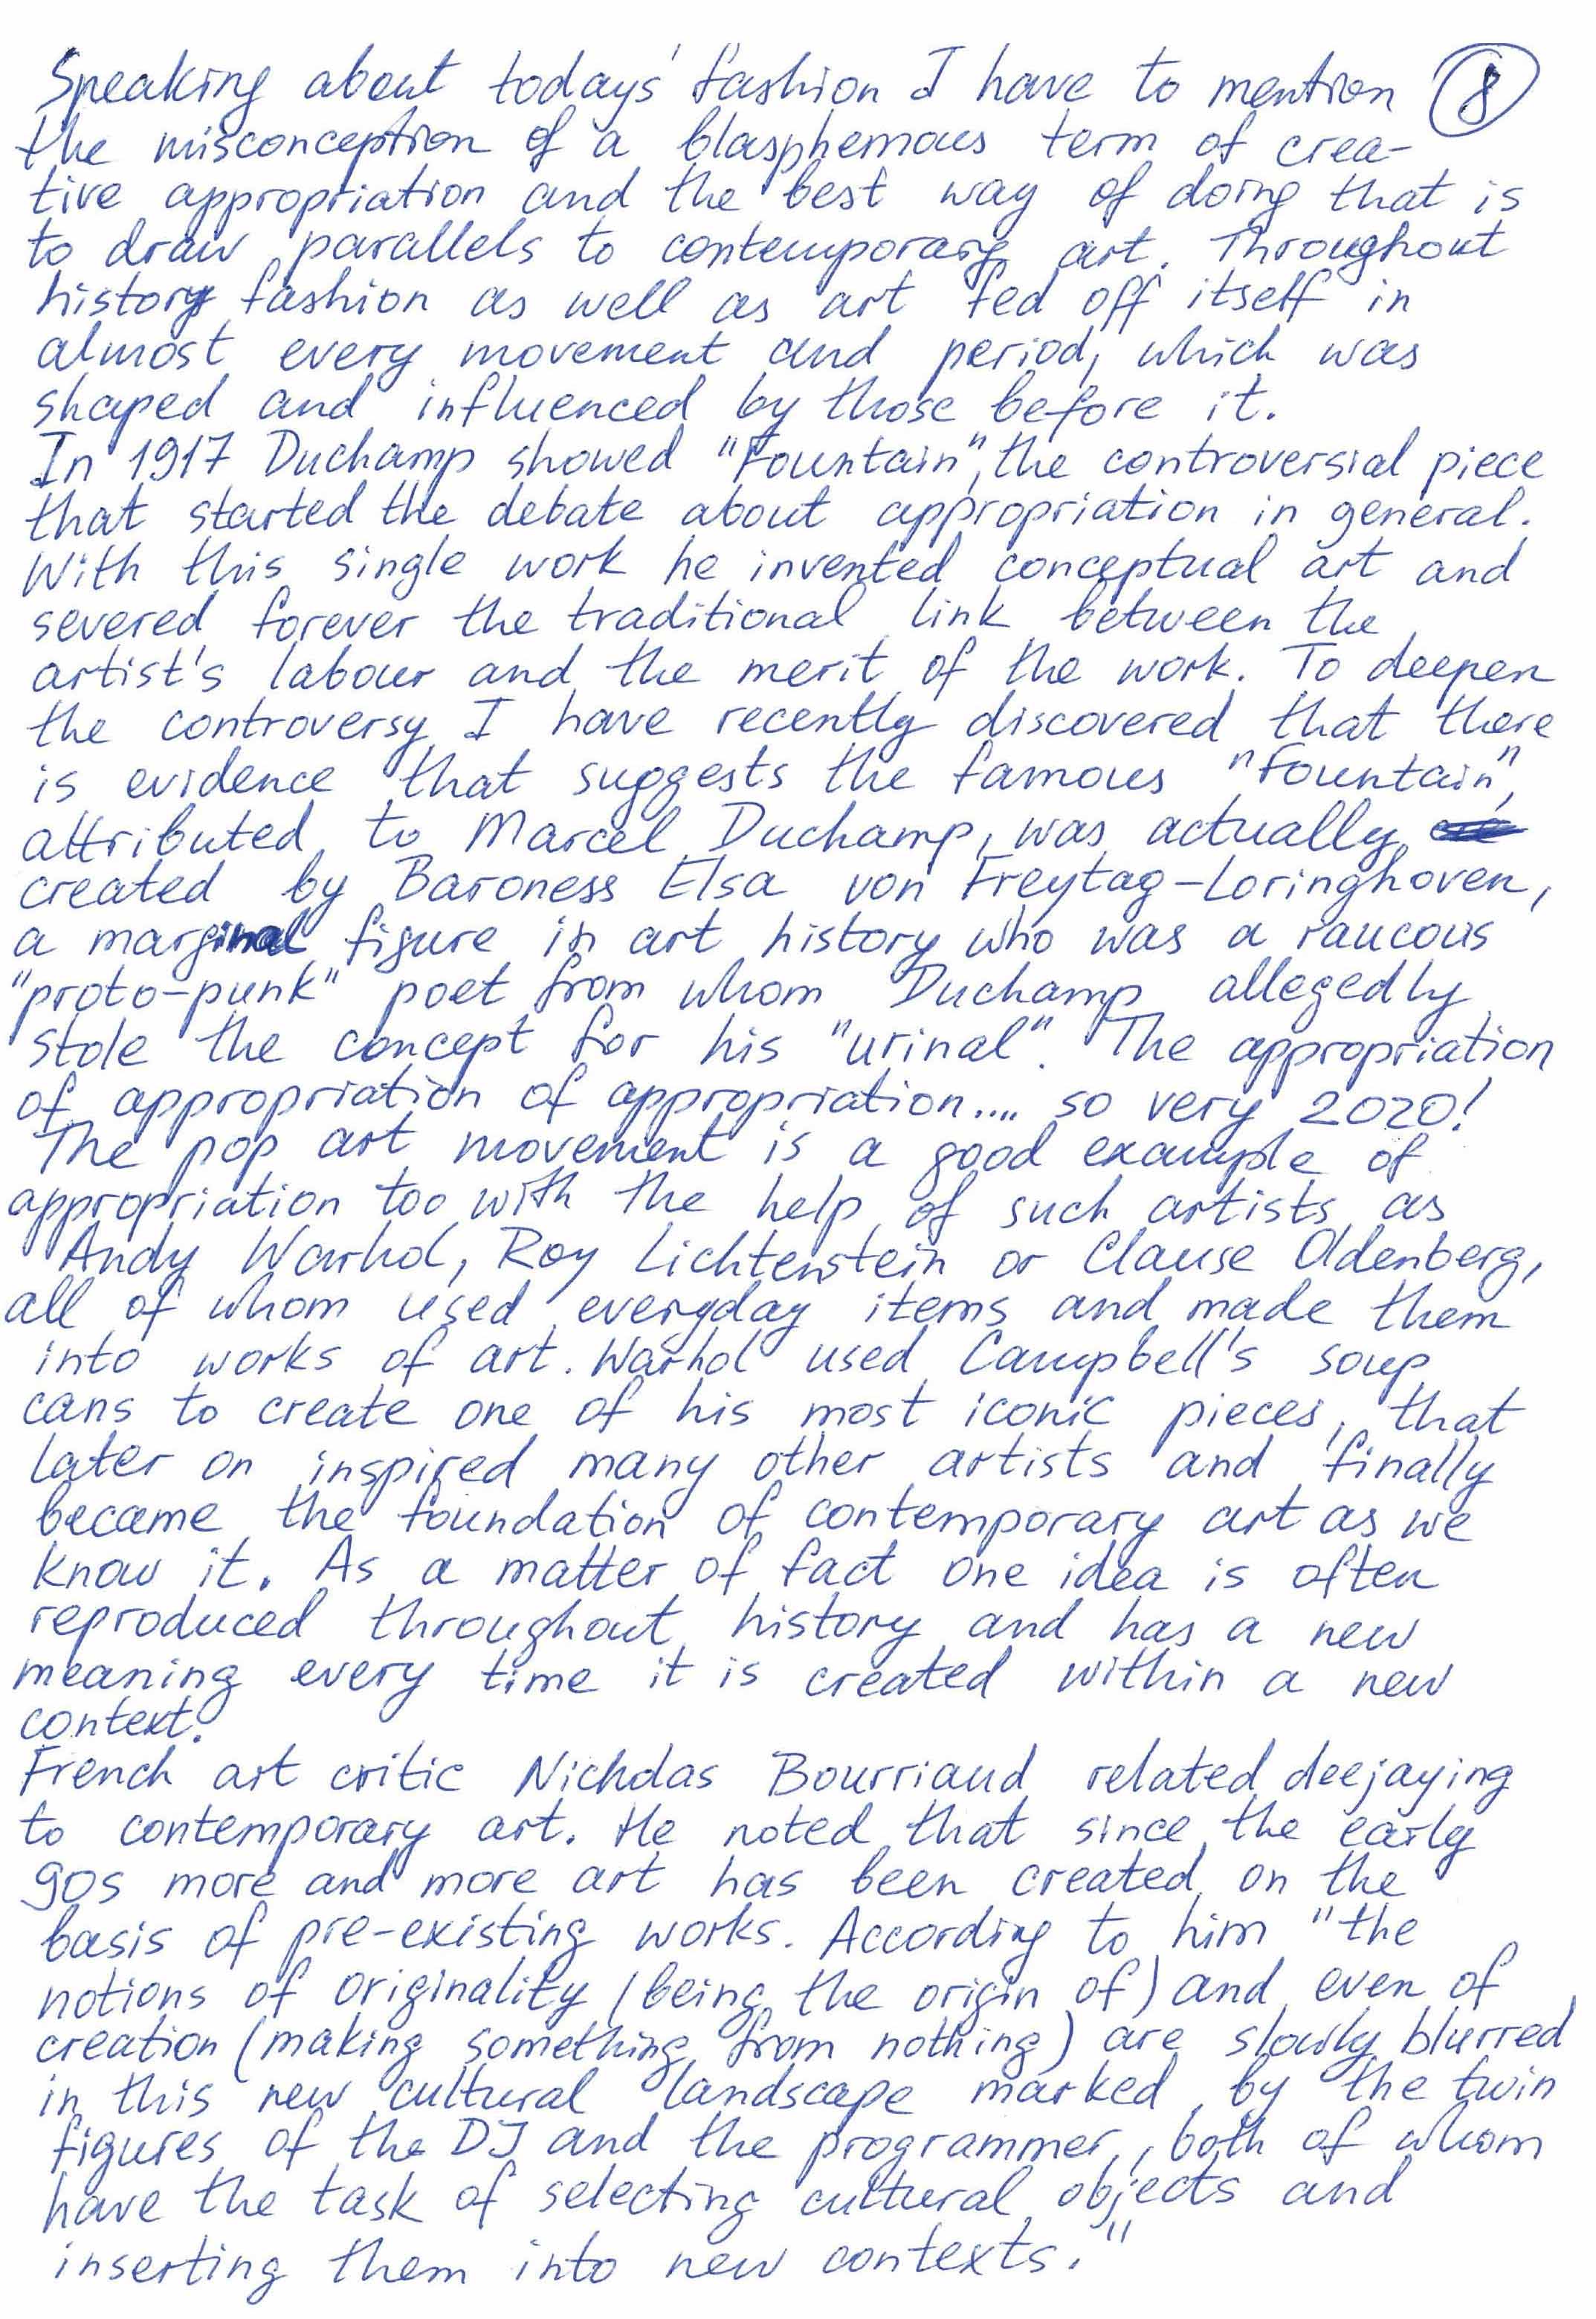 Speaking about todays' fashion I have to mention 8
the misconception of a blasphemous term of crea-
tive appropriation and the best way of doing that is
to draw parallels to contemporary art. Throughout
history fashion as well as art fed off itself in
almost every movement and period, which was
shaped and influenced by those before it.
In 1917 Duchamp showed "Fountain", the controversial piece
that started the debate about appropriation in general.
With this single work he invented conceptual art and
severed forever the traditional link between the
artist's labour and the merit of the work. To deepen
the controversy I have recently discovered that there
is evidence that suggests the famous "Fountain",
attributed to Marcel Duchamp, was actually
created by Baroness Elsa von Freytag-Loringhoven,
a marginal figure in art history who was a raucous
"proto-punk" poet from whom Duchamp allegedly
stole the concept for his "urinal". The appropriation
of appropriation of appropriation.... so very 2020!
The pop art movement is a good example of
appropriation too with the help of such artists as
Andy Warhol, Roy Lichtenstein or Clause Oldenberg,
all of whom used everyday items and made them
into works of art. Warhol used Campbell's soup
cans to create one of his most iconic pieces, that
later on inspired many other artists and finally
became the foundation of contemporary art as we
know it. As a matter of fact one idea is often
reproduced throughout history and has a new
meaning every time it is created within a new
context.
French art critic Nicholas Bourriaud related deejaying
to contemporary art. He noted that since the early
90s more and more art has been created on the
basis of pre-existing works. According to him "the
notions of originality (being the origin of) and even of
creation (making something from nothing) are slowly blurred
in this new cultural landscape marked by the twin
figures of the DJ and the programmer, both of whom
have the task of selecting cultural objects and
inserting them into new contexts."